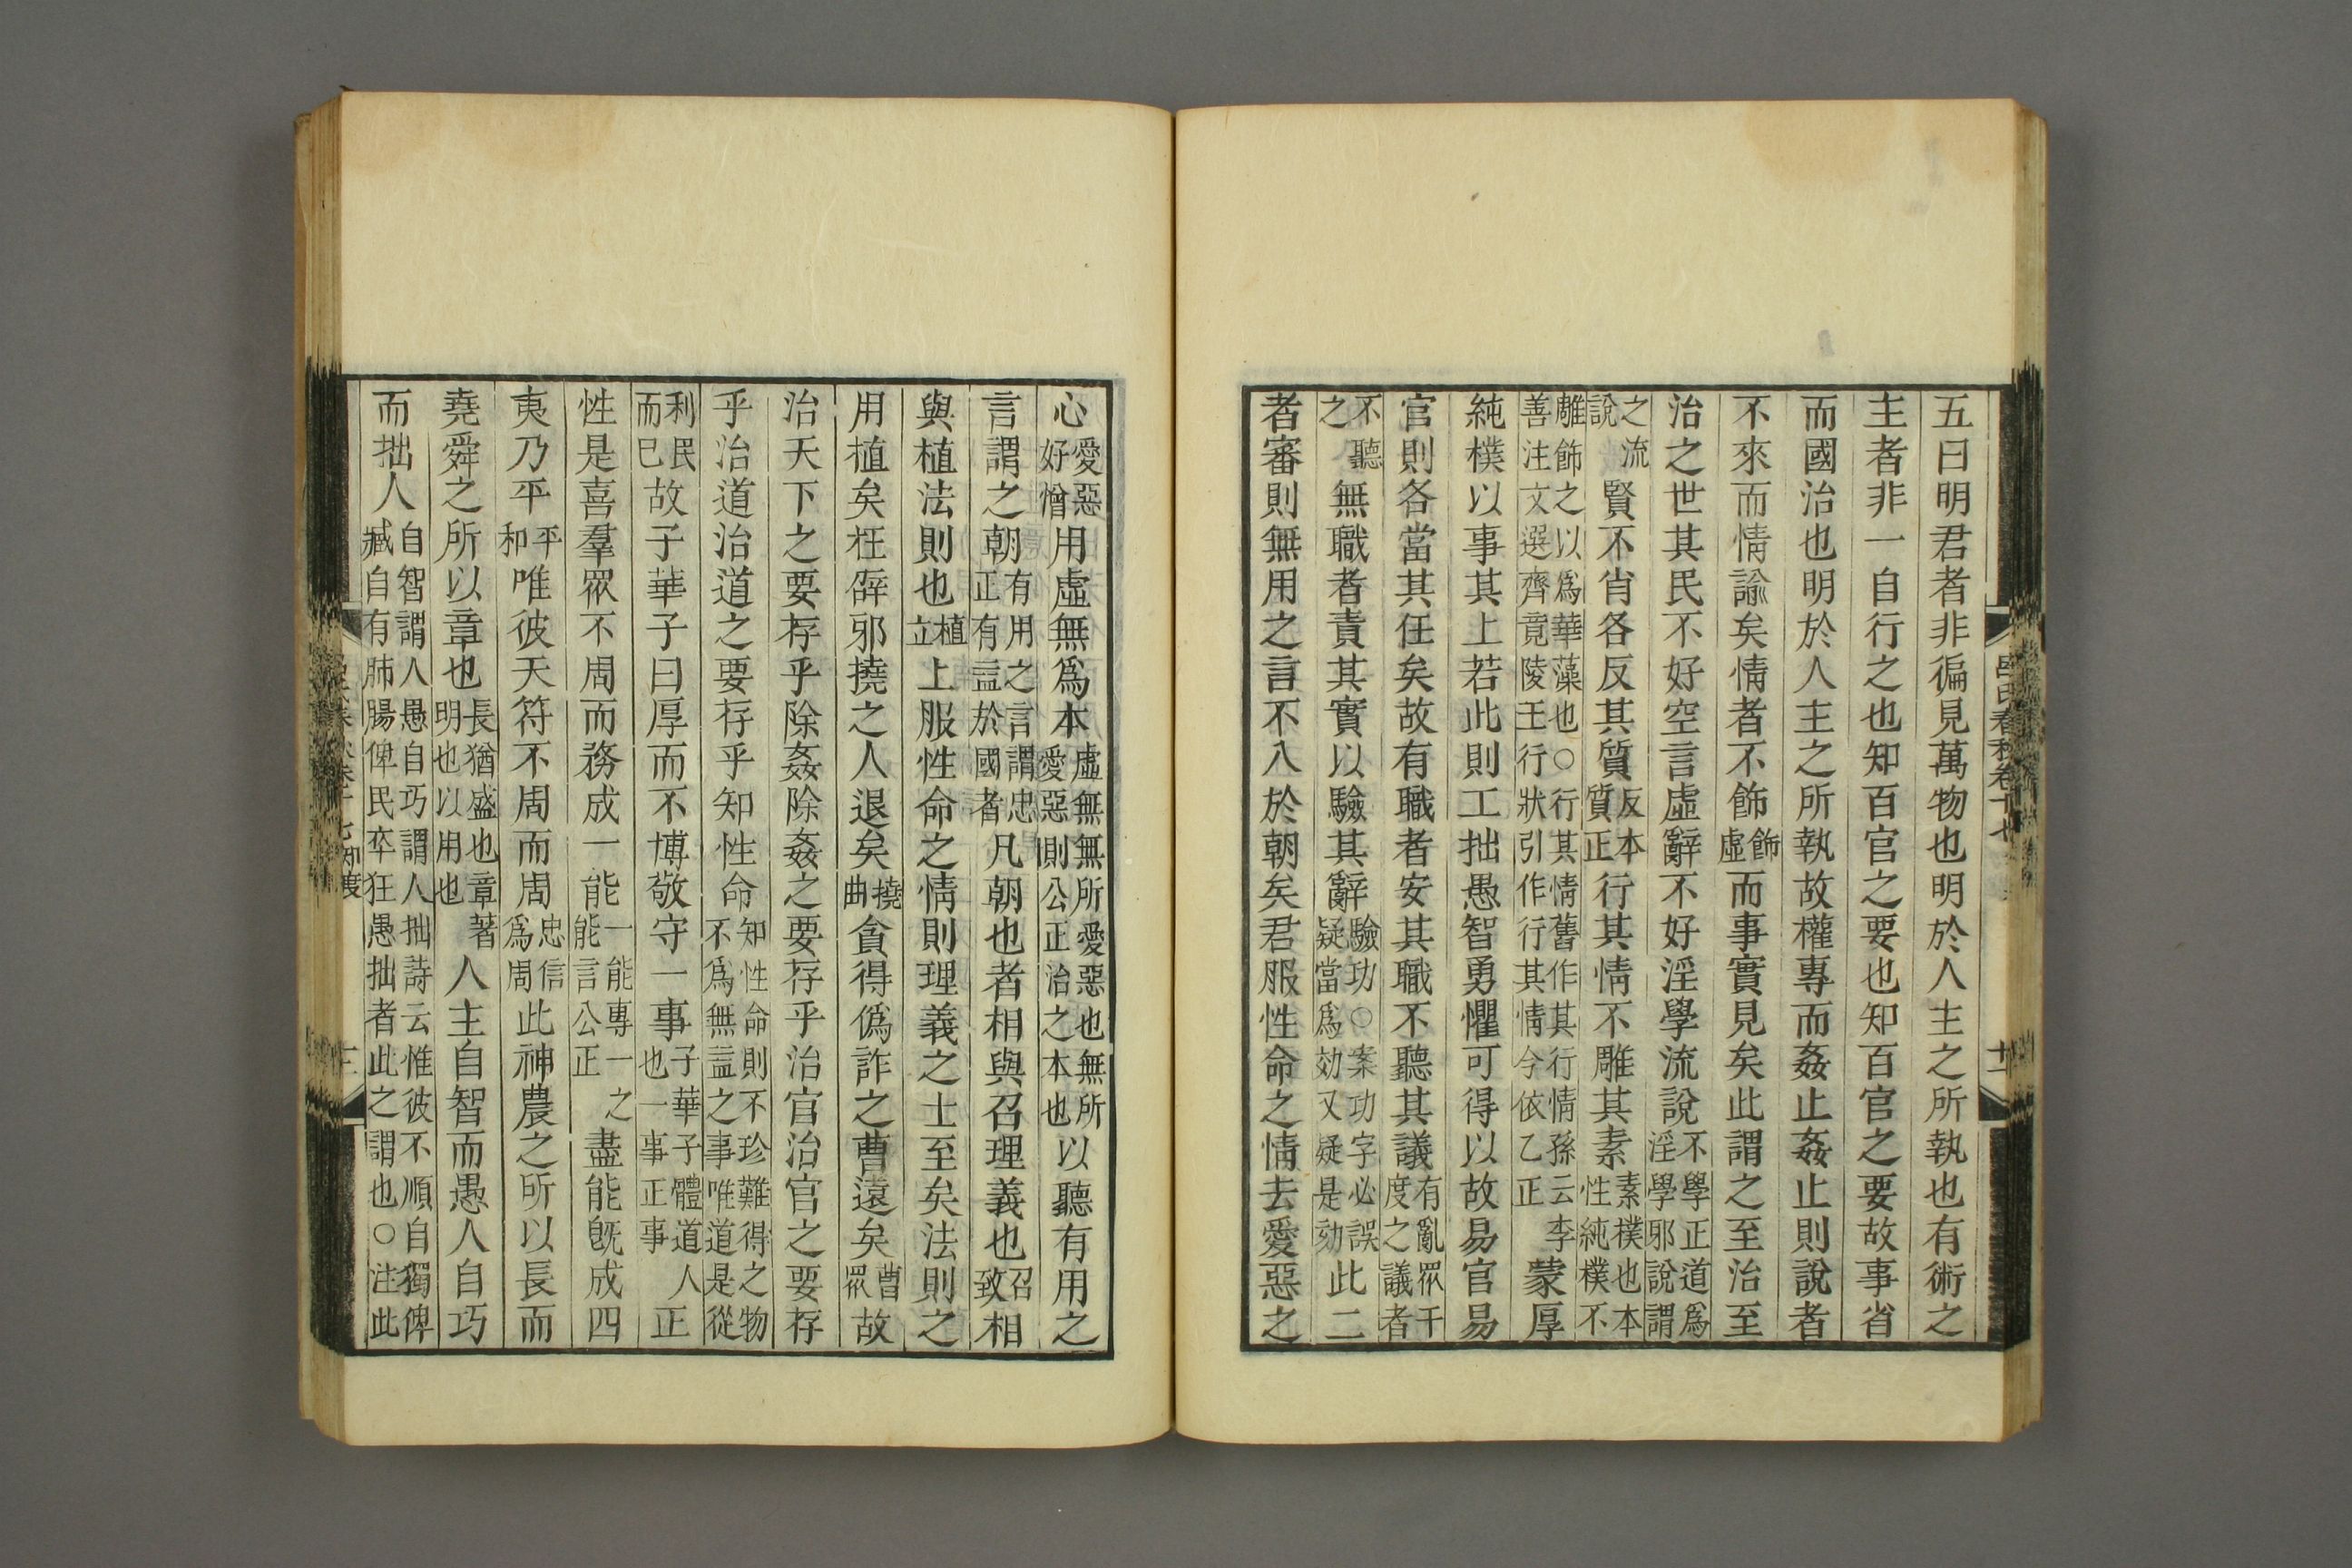 五曰明君者非徧見萬物也明於人主之所執也有術之
主者非一自行之也知百官之要也知百官之要故事省
而國治也明於人主之所執故權專而姦止姦止則說者
不來而情諭矣情者不飾飾虛而事實見矣此謂之至治至
治之世其民不好空言虛辭不好淫學流說不學正道爲淫學邪說謂
之流說賢不肖各反其質反本質正行其情不雕其素素樸也本性純樸不
雕飾之以爲華藻也○行其情舊作其行情孫云李善注文選齊竟陵王行狀引作行其情今依乙正蒙厚
純樸以事其上若此則工拙愚智勇懼可得以故易官易
官則各當其任矣故有職者安其職不聽其議有亂眾干度之議者
不聽之無職者責其實以驗其辭驗功○案功字必誤疑當爲効又疑是効此二
者審則無用之言不入於朝矣君服性命之情去愛惡之
心愛惡好憎用虛無爲本虛無無所愛惡也無所愛惡則公正治之本也以聽有用之
言謂之朝有用之言謂忠正有益於國者凡朝也者相與召理義也召致相
與植法則也植立上服性命之情則理義之士至矣法則之
用植矣枉辟邪撓之人退矣撓曲貪得僞詐之曹遠矣曹眾故
治天下之要存乎除姦除姦之要存乎治官治官之要存
乎治道治道之要存乎知性命知性命則不珍難得之物不爲無益之事唯道是從
利民而已故子華子曰厚而不博敬守一事子華子體道人也一事正事正
性是喜羣眾不周而務成一能一能專一之能言公正盡能旣成四
夷乃平平和唯彼天符不周而周忠信爲周此神農之所以長而
堯舜之所以章也長猶盛也章著明也以用也人主自智而愚人自巧
而拙人自智謂人愚自巧謂人拙詩云惟彼不順自獨俾臧自有肺腸俾民卒狂愚拙者此之謂也○注此
呂氏春秋卷十七